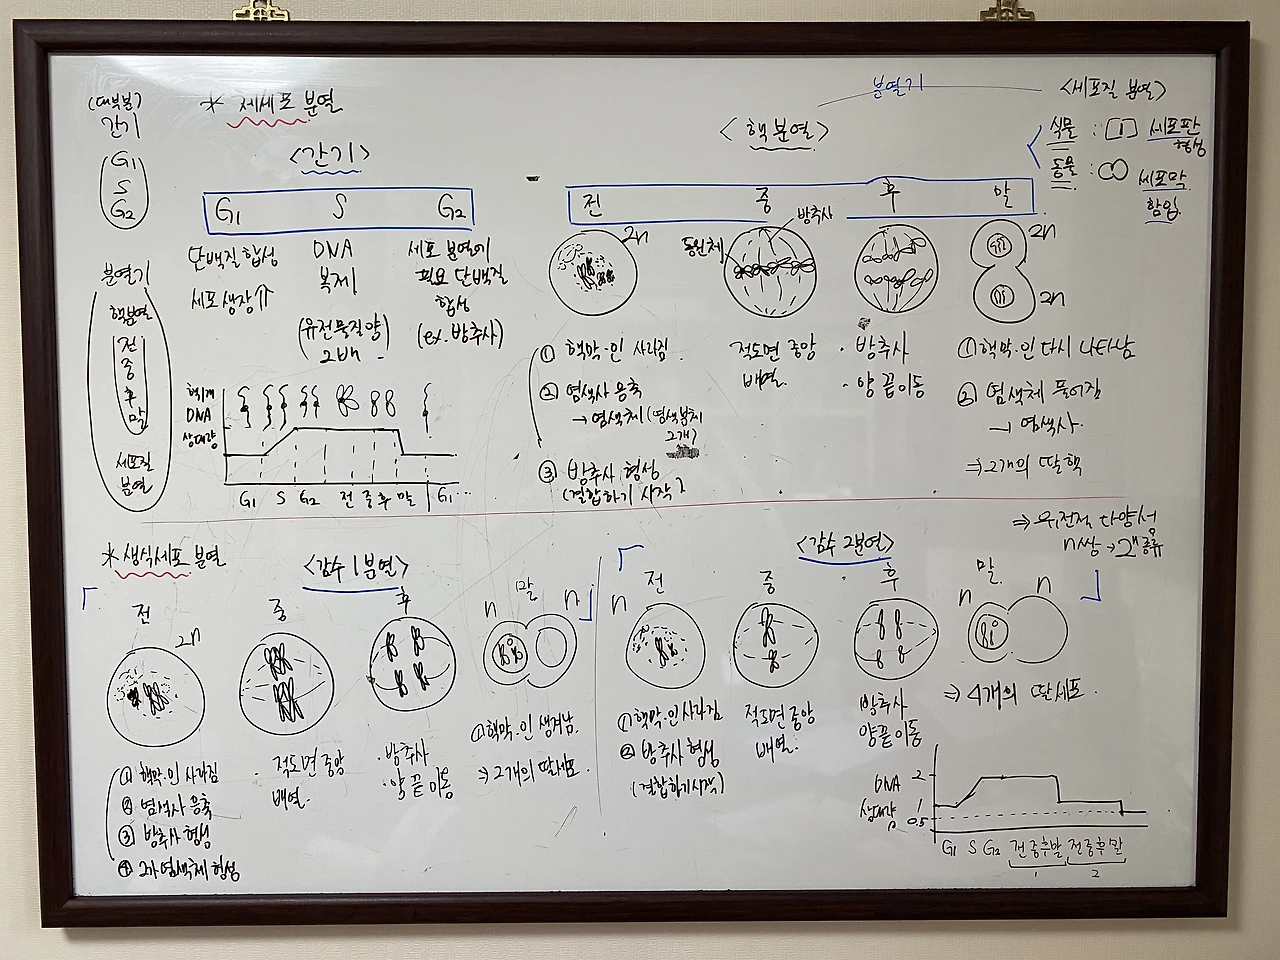 (대부분)
간기
G₁
S
G₂
분열기
핵분열
전
중
후
말
세포질
분열
* 체세포 분열
<간기>
G₁ S G₂
단백질 합성
세포 생장⇑
DNA
복제
(유전물질양)
2배
세포 분열에
필요 단백질
합성
(ex. 방추사)
핵 1개
DNA
상대량
G₁ S G₂ 전 중 후 말 G₁ ...
분열기
<핵분열>
<세포질 분열>
식물 : 세포판
형성
동물 : 세포막
함입
전 중 후 말
2n
동원체
방추사
2n
2n
① 핵막·인 사라짐
② 염색사 응축
→ 염색체 (염색분체
2개)
③ 방추사 형성
(결합하기 시작)
적도면 중앙
배열.
· 방추사
· 양 끝 이동
① 핵막·인 다시 나타남
② 염색체 풀어짐
→ 염색사.
⇒ 2개의 딸핵
* 생식세포 분열
<감수 1분열>
전 중 후 말
2n
n n
① 핵막·인 사라짐
② 염색사 응축
③ 방추사 형성
④ 2가 염색체 형성
· 적도면 중앙
배열.
· 방추사
· 양 끝 이동
① 핵막·인 생겨남.
⇒ 2개의 딸세포.
<감수 2분열>
⇒ 유전적 다양성
n쌍 → 2ⁿ종류
전 중 후 말
n
n n
① 핵막·인 사라짐
② 방추사 형성
(결합하기 시작)
적도면 중앙
배열.
방추사
양끝 이동
⇒ 4개의 딸세포.
DNA
상대량
2
1
0.5
G₁ S G₂ 전 중 후 말 전 중 후 말
1 2